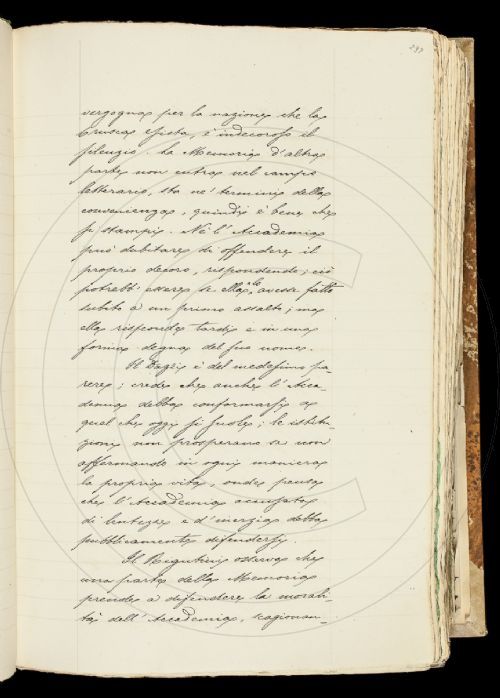 297
vergogna per la nazione che la
Crusca esista, è indecoroso il
silenzio. La Memoria d'altra
parte non entra nel campo
letterario, sta ne' termini della
convenienza, quindi è bene che
si stampi. Nè l'Accademia
può dubitare di offendere il
proprio decoro, rispondendo; ciò
potrebb' essere se ella lo avesse fatto
subito a un primo assalto; ma
ella risponde tardi e in una
forma degna del suo nome.
Il Dazzi è del medesimo pa-
rere; crede che anche l'Acca-
demia debba conformarsi a
quel che oggi si suole; le istitu-
zioni non prosperano se non
affermando in ogni maniera
la propria vita, onde pensa
che l'Accademia accusata
di lentezza e d'inerzia debba
pubblicamente difendersi.
Il Rigutini osserva che
una parte della Memoria
prende a difendere la morali-
tà dell'Accademia, ragionan-